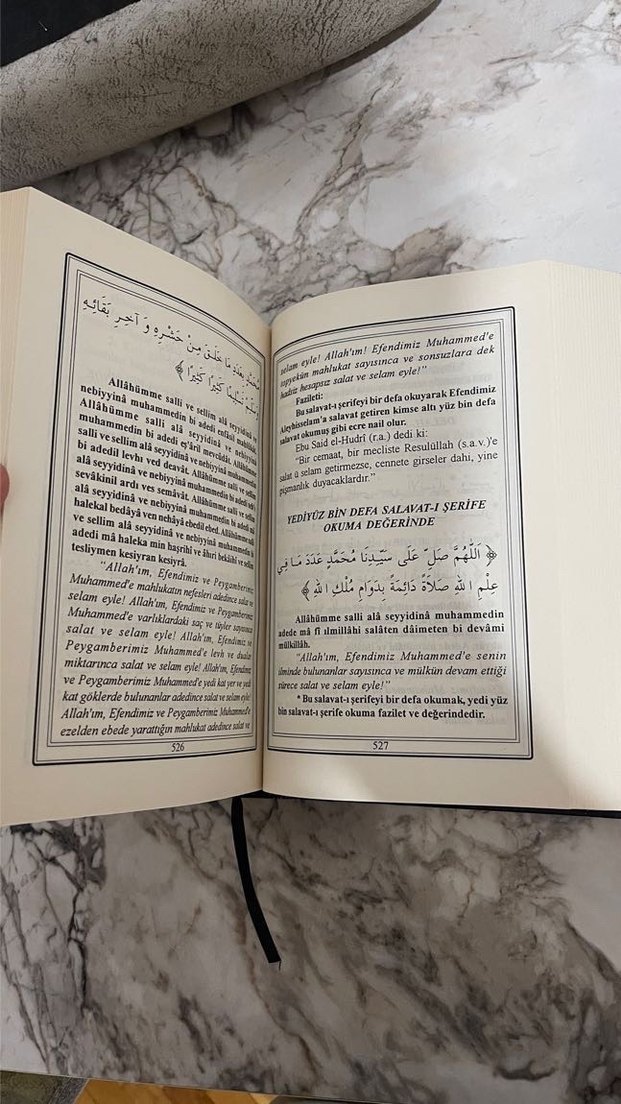 مُحَمَّدٍ بِعَدَدِ مَا خَلَقَ مِنْ حَشْرِهِ وَ آخِرِ بَقَائِهِ
وَسَلِّمْ تَسْلِيمًا كَثِيرًا كَثِيرًا ﴾
Allâhümme salli ve sellim alâ seyyidinâ ve
nebiyyinâ muhammedin bi adedi
Allâhümme salli alâ seyyidinâ ve nebiyyinâ
muhammedin bi adedi eş'âril mevcûdât. Allâhümme
salli ve sellim alâ seyyidinâ ve nebiyyinâ muhammedin
bi adedil levhı ved deavât. Allâhümme salli ve sellim
alâ seyyidinâ ve nebiyyinâ muhammedin bi adedi
sevâkinil ardı ves semâvât. Allâhümme salli ve sellim
alâ seyyidinâ ve nebiyyinâ muhammedin bi adedi
halekal bedâyâ ven nehâyâ ebedil ebed. Allâhümme salli
ve sellim alâ seyyidinâ ve nebiyyinâ muhammedin bi
adedi mâ haleka min haşrihî ve âhıri bekâihî ve sellim
tesliymen kesiyran kesiyrâ.
"Allah'ım, Efendimiz ve Peygamberimiz
Muhammed'e mahlukatın nefesleri adedince salat
selam eyle! Allah'ım, Efendimiz ve Peygamberimiz
Muhammed'e varlıklardaki saç ve tüyler sayısınca
salat ve selam eyle! Allah'ım, Efendimiz ve
Peygamberimiz Muhammed'e levh ve dualar
miktarınca salat ve selam eyle! Allah'ım, Efendimiz
ve Peygamberimiz Muhammed'e yedi kat yer ve yedi
kat göklerde bulunanlar adedince salat ve selam eyle!
Allah'ım, Efendimiz ve Peygamberimiz Muhammed'e
ezelden ebede yarattığın mahlukat adedince salat ve
526
selam eyle! Allah'ım! Efendimiz Muhammed'e
topyekün mahlukat sayısınca ve sonsuzlara dek
hadsiz hesapsız salat ve selam eyle!"
Fazileti:
Bu salavat-ı şerifeyi bir defa okuyarak Efendimiz
Aleyhisselam'a salavat getiren kimse altı yüz bin defa
salavat okumuş gibi ecre nail olur.
Ebu Said el-Hudrî (r.a.) dedi ki:
"Bir cemaat, bir mecliste Resulüllah (s.a.v.)'e
salat ü selam getirmezse, cennete girseler dahi, yine
pişmanlık duyacaklardır."
YEDİYÜZ BİN DEFA SALAVAT-I ŞERİFE
OKUMA DEĞERİNDE
﴿ اَللّٰهُمَّ صَلِّ عَلَى سَيِّدِنَا مُحَمَّدٍ عَدَدَ مَا فِي
عِلْمِ اللهِ صَلَاةً دَائِمَةً بِدَوَامِ مُلْكِ اللهِ ﴾
Allâhümme salli alâ seyyidinâ muhammedin
adede mâ fî ilmillâhi salâten dâimeten bi devâmi
mülkillâh.
"Allah'ım, Efendimiz Muhammed'e senin
ilminde bulunanlar sayısınca ve mülkün devam ettiği
sürece salat ve selam eyle!"
* Bu salavat-ı şerifeyi bir defa okumak, yedi yüz
bin salavat-ı şerife okuma fazilet ve değerindedir.
527